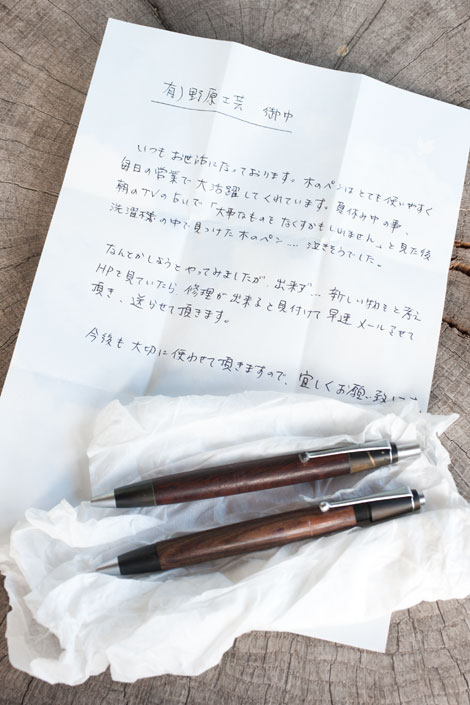 有)野原工芸 御中
いつもお世話になっております。木のペンはとても使いやすく
毎日の営業で大活躍してくれています。夏休み中の事、
朝のTVの占いで「大事なものをなくすかもしれません」と見た後
洗濯機の中で見つけた木のペン…泣きそうでした。
なんとかしようとやってみましたが、出来ず…新しい物をと考え
HPを見ていたら修理が出来ると見付けて早速メールさせて
頂き、送らせて頂きます。
今後も大切に使わせて頂きますので、宜しくお願い致し